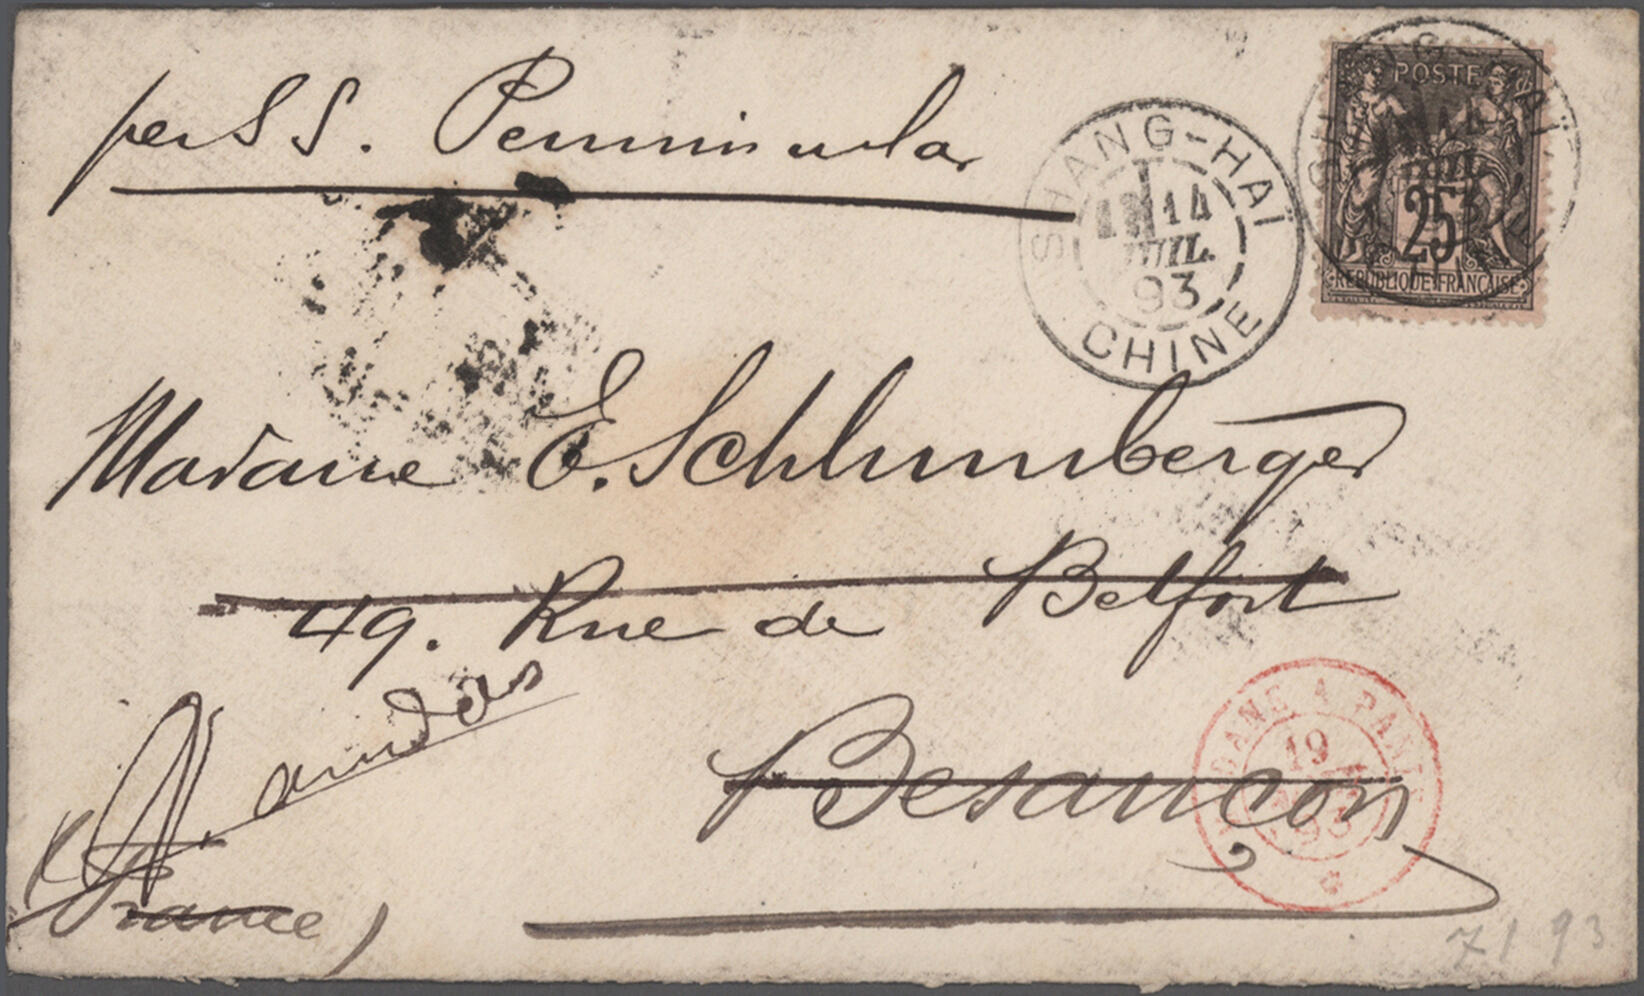 per SS. Peninsular
SHANG-HAÏ
14
JUIL.
93
CHINE
POSTE
25
REPUBLIQUE FRANCAISE
Madame E. Schlumberger
49. Rue de Belfort
Besançon
(France)
19
93
7 1 93